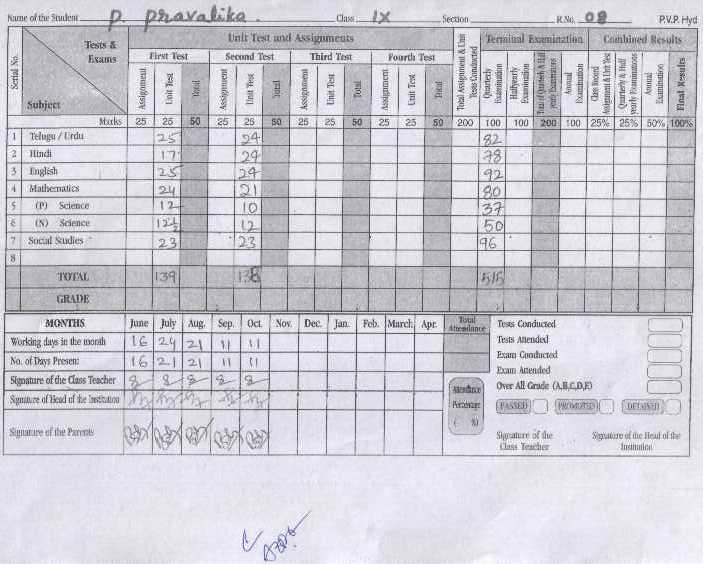 Name of the Student P. Pravalika. Class IX Section R.No. 08 P.V.P. Hyd
Serial No. Tests & Exams Unit Test and Assignments Total Assignment & Unit Tests Conducted Terminal Examination Combined Results
First Test Second Test Third Test Fourth Test
Subject Assignment Unit Test Total Assignment Unit Test Total Assignment Unit Test Total Assignment Unit Test Total Quarterly Examination Halfyearly Examination Total of Quarterly & Half yearly Examinations Annual Examination Class Record Assignment & Unit Test Quarterly & Half yearly Examinations Annual Examination Final Results
Marks 25 25 50 25 25 50 25 25 50 25 25 50 200 100 100 200 100 25% 25% 50% 100%
1 Telugu / Urdu 25 24 82
2 Hindi 17 24 78
3 English 25 24 92
4 Mathematics 24 21 80
5 (P) Science 12 10 37
6 (N) Science 12½ 12 50
7 Social Studies 23 23 96
8
TOTAL 139 138 515
GRADE
MONTHS June July Aug. Sep. Oct. Nov. Dec. Jan. Feb. March Apr. Total Attendance
Working days in the month 16 24 21 11 11
No. of Days Present 16 21 21 11 11
Signature of the Class Teacher
Signature of Head of the Institution
Signature of the Parents
Attendance Percentage ( %)
Tests Conducted
Tests Attended
Exam Conducted
Exam Attended
Over All Grade (A,B,C,D,E)
PASSED PROMOTED DETAINED
Signature of the Class Teacher Signature of the Head of the Institution